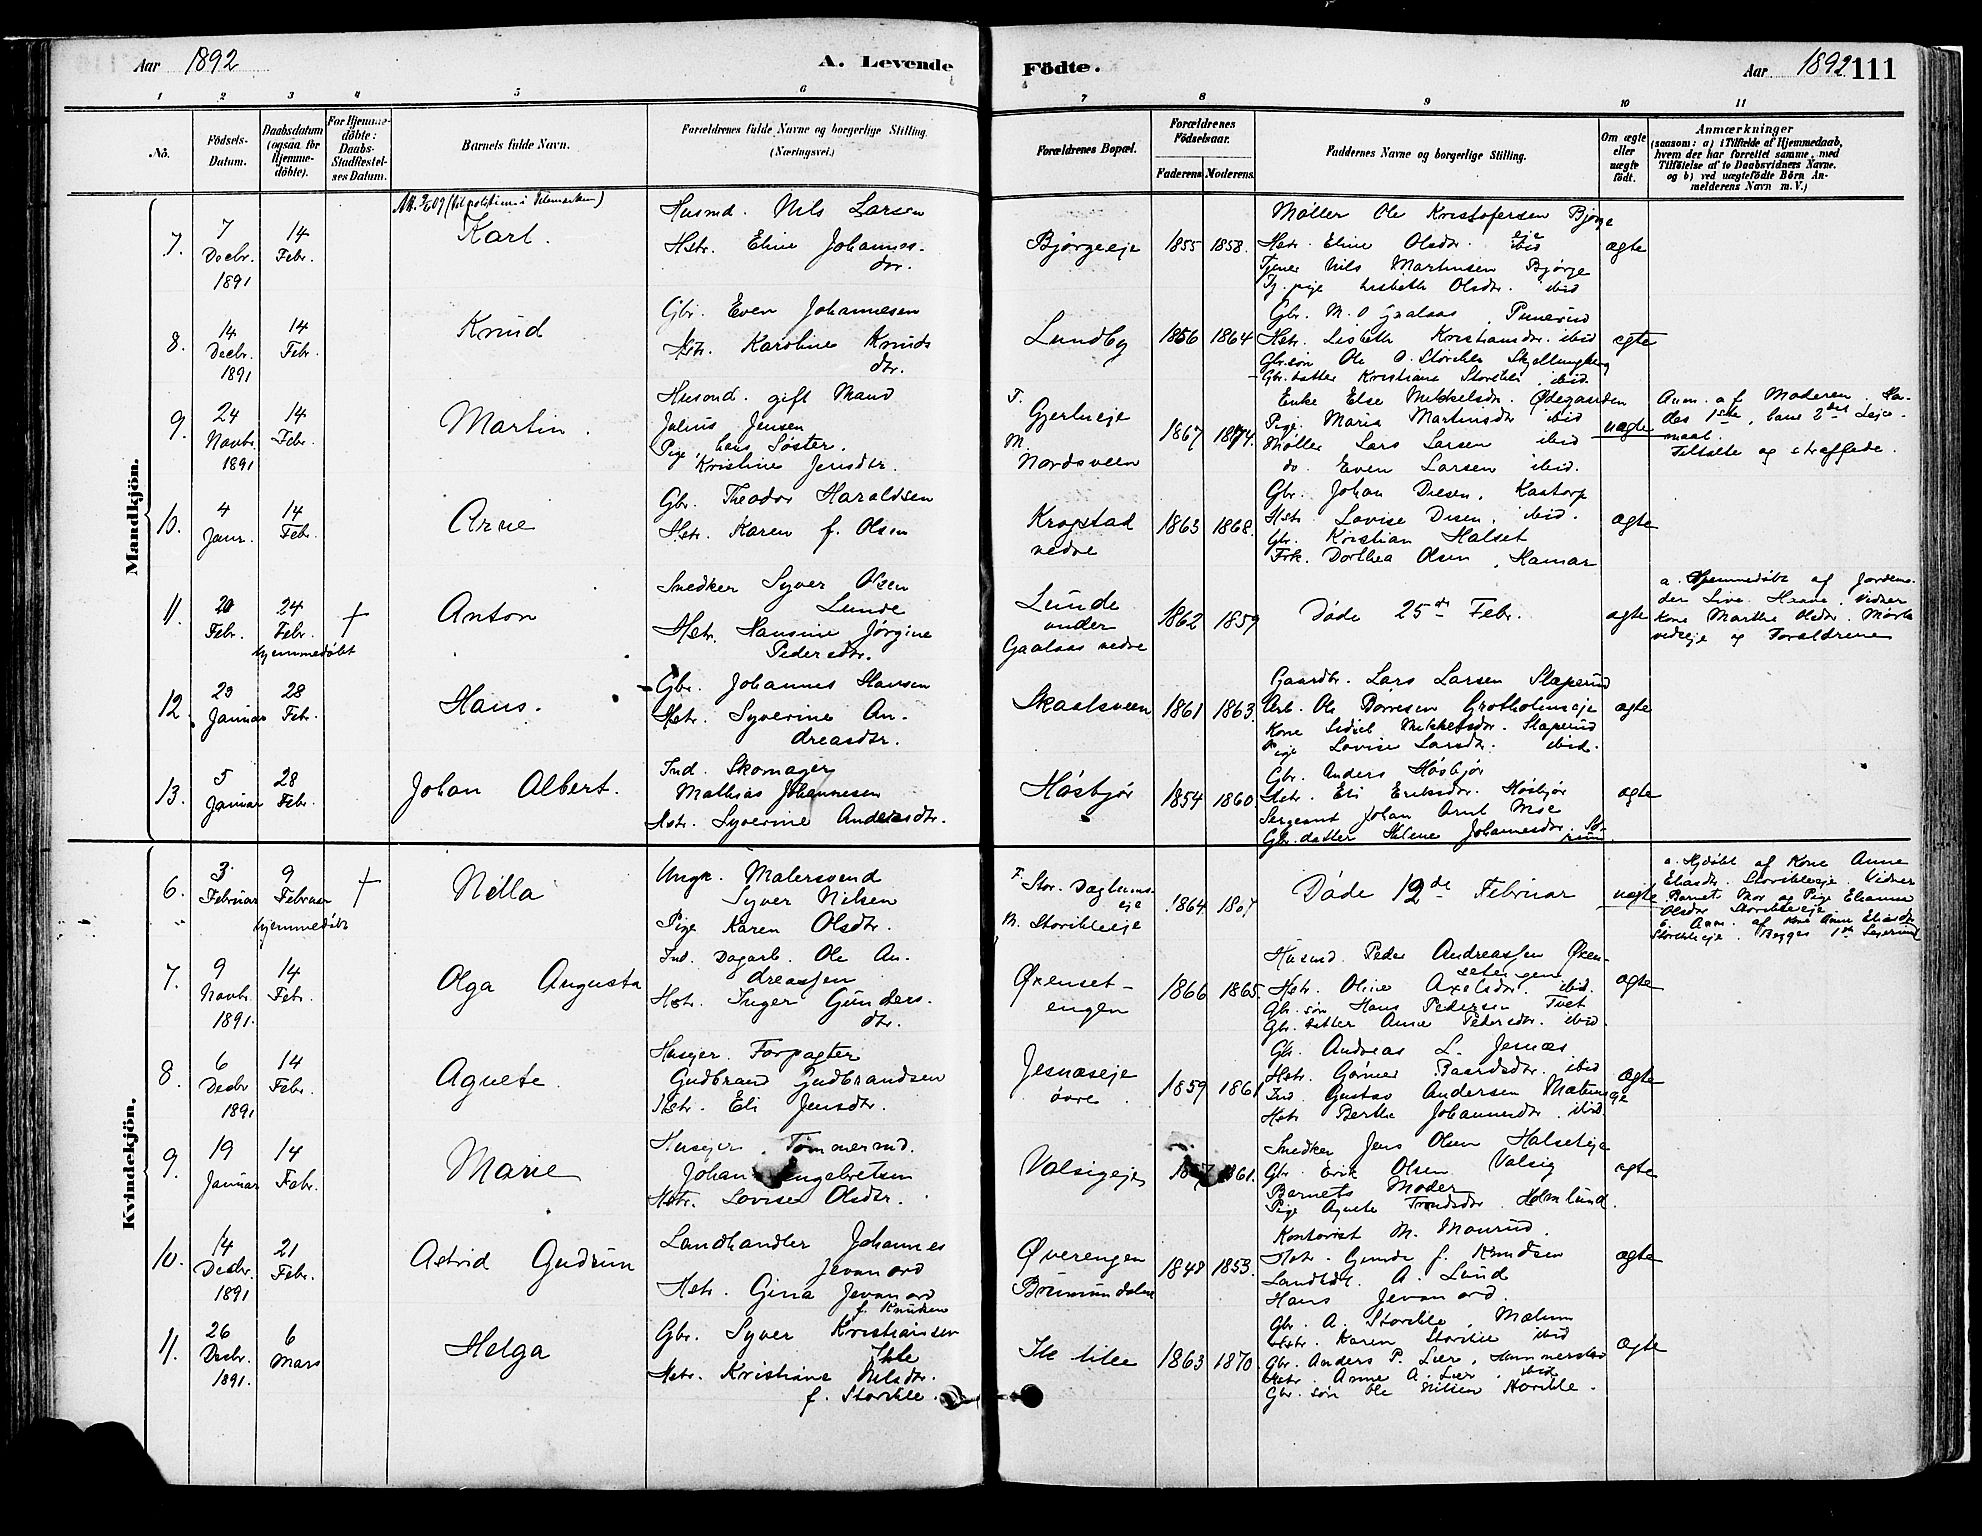 Aar 1892
A. Levende
Födte.
Aar 1892
111
1 2 3 4 5 6 7 8 9 10 11
No.
Födsels-
Datum.
Daabsdatum
(ogsaa for
Hjemme-
döbte).
For Hjemme-
döbte:
Daabs-
Stadfæstel-
ses Datum.
Barnets fulde Navn.
Forældrenes fulde Navne og borgerlige Stilling.
(Næringsvei.)
Forældrenes Bopæl.
Forældrenes
Födselsaar.
Faderens. Moderens.
Faddernes Navne og borgerlige Stilling.
Om ægte
eller
uægte
födt.
Anmærkninger
(saasom: a) i Tilfælde af Hjemmedaab,
hvem der har forrettet samme, med
Tilföielse af to Daabsvidners Navne,
og b) ved uægtefödte Börn An-
melderens Navn m. V.)
Mandkjön.
7.
7
Decbr.
1891
14
Febr.
Karl.
Husmd. Nils Larsen
Hstr. Eline Johannes-
dtr.
Bjørgeeje
1855
1858.
Møller Ole Kristofersen Bjørge
eje
Hstr. Eline Olsdtr. ibid
Tjener Nils Martinsen Bjørge
Tj. pige Lisbeth Olsdtr. ibid
ægte
8.
14
Decbr.
1891
14
Febr.
Knud
Gbr. Even Johannesen
Hstr. Karoline Knuds
dtr.
Lundby
1856
1864
Gbr. M. O Gaalaas,
Hstr. Lisbeth Kristiansdtr. ibid
Gbr.søn Ole O. Storihle
Gbr. datter Kristiane Storihle, ibid.
ægte
9.
24
Novbr.
1891
14
Febr.
Martin.
Husmd. gift Mand
Julius Jensen
Pige, hans Søster.
Kristine Jensdtr.
F.
Gjerlueje
M.
Nordsveen
1867
1874.
Enke Else Mikkelsdtr. Ødegaarden
Pige. Maria Martinsdtr ibid
Møller Lars Larsen ibid
do. Even Larsen ibid.
uægte
Anm. af Moderen.
des 1ste, hans 2det Leje-
maal.
Tiltalte og straffede.
10.
4
Janr.
14
Febr.
Arne
Gbr. Theodor Haraldsen
Hstr. Karen f. Olsen
Kragstad
nedre
1863
1868.
Gbr. Johan Diesen, Kastorp
Hstr. Lovise Diesen, ibid.
Gbr. Kristian Halset
Frk. Dorthea Olsen, Hamar
ægte
11.
20
Febr.
24
Febr.
hjemmedøbt
†
Anton
Snedker Syver Olsen
Lunde
Hstr. Hansine Jørgine
Pedersdtr.
Lunde
under
Gaalaas nedre
1862
1859
Døde 25de Febr.
ægte
a. Hjemmedøbt af Jordemo-
der Live Haave. Vidner
Kone Marthe Olsdtr.
og Forældrene
12.
23
Januar
28
Febr.
Hans.
Gbr. Johannes Hansen
Hstr. Syverine An-
dreasdtr.
Skaslsveen
1861
1863.
Gaardbr. Lars Larsen Slaperud
Arb. Ole Børresen Grotholmseje
Kone Sidsel Mikkelsdtr. Slaperud
Pige Lovise Larsdtr. ibid.
ægte
13.
5
Januar
28
Febr.
Johan Albert.
Ind. Skomager
Mathias Johannesen
Hstr. Syverine Andersdtr.
Høsbjør
1854
1860.
Gbr. Anders Høsbjør
Hstr. Eli Eriksdtr. Høsbjør
Sergeant Johan Arnt Moe
Gbr. datter Helene Johannesdtr.
ægte
Kvindekjön.
6.
3
Februar
9
Februar
hjemmedøbt
†
Nella
Ungk. Malersvend
Syver Nilsen
Pige Karen Olsdtr.
F. Stor.
eje
M. Storihleeje
1864
1867
Døde 12de Februar
uægte
a. Hjdøbt af Kone Anne
Eliasdtr. Storihleeje. Vidner
Barnets Mor og Pige Eleanne
Olsdtr Storihleeje
b. Anm. af Kone Anne Eliasdtr
Storihleeje. Begges 1ste Lejermaal
7.
9
Novbr.
1891.
14
Febr.
Olga Augusta
Ind. Dagarb. Ole An-
dreassen
Hstr. Inger Gunders-
dtr.
Øxenset-
engen
1866
1865.
Husmd Peder Andreassen Øxen-
setengene
Hstr. Oline Axelsdtr. ibid.
Gbr. søn Hans Pedersen Tvet
Gbr. datter Anne Pedersdtr. ibid.
ægte
8.
6
Decbr
1891
14
Febr.
Agnete.
Husejer. Forpagter
Gudbrand Gudbrandsen
Hstr. Eli Jensdtr.
Jesnæseje
øvre.
1859
1861
Gbr. Andreas L. Jesnæs
Hstr. Gørner Baardsdtr. ibid
Ind. Gustav Andersen
Hstr Berthe Johannesdtr. ibid
ægte
9.
19
Januar
14
Febr.
Marie
Husejer. Tømmermd.
Johan Engebretsen
Hstr. Lovise Olsdtr.
Valsigeje
1857
1861.
Snedker Jens Olsen Halseteje
Gbr. Erik Olsen Valsig
Barnets Moder
Pige Agnete Trondsdtr Holmlund.
ægte
10.
14
Decbr.
1891
21
Febr.
Astrid Gudrun
Landhandler Johannes
Jevanord
Hstr. Gina Jevanord
f. Knutzen
Øverengen
Brumunddalen
1848
1853.
Kontorist M. Maurud.
Hstr. Gunda f. Knudsen
Landhdl. A. Lund
Hans Jevanord.
ægte
11.
26
Decbr.
1891.
6
Mars
Helga
Gbr. Syver Kristiansen
Ihle
Hstr. Kristiane Nilsdtr.
f. Storihle.
Ihle lille
1863
1870.
Gbr. A. Storihle, Mælum
Hstr. Karen Storihle ibid
Gbr. Anders P. Lier, Hammerstad
Hstr. Anne A. Lier. ibid
Gbr. søn Ole Nilsen Storihle.
ægte